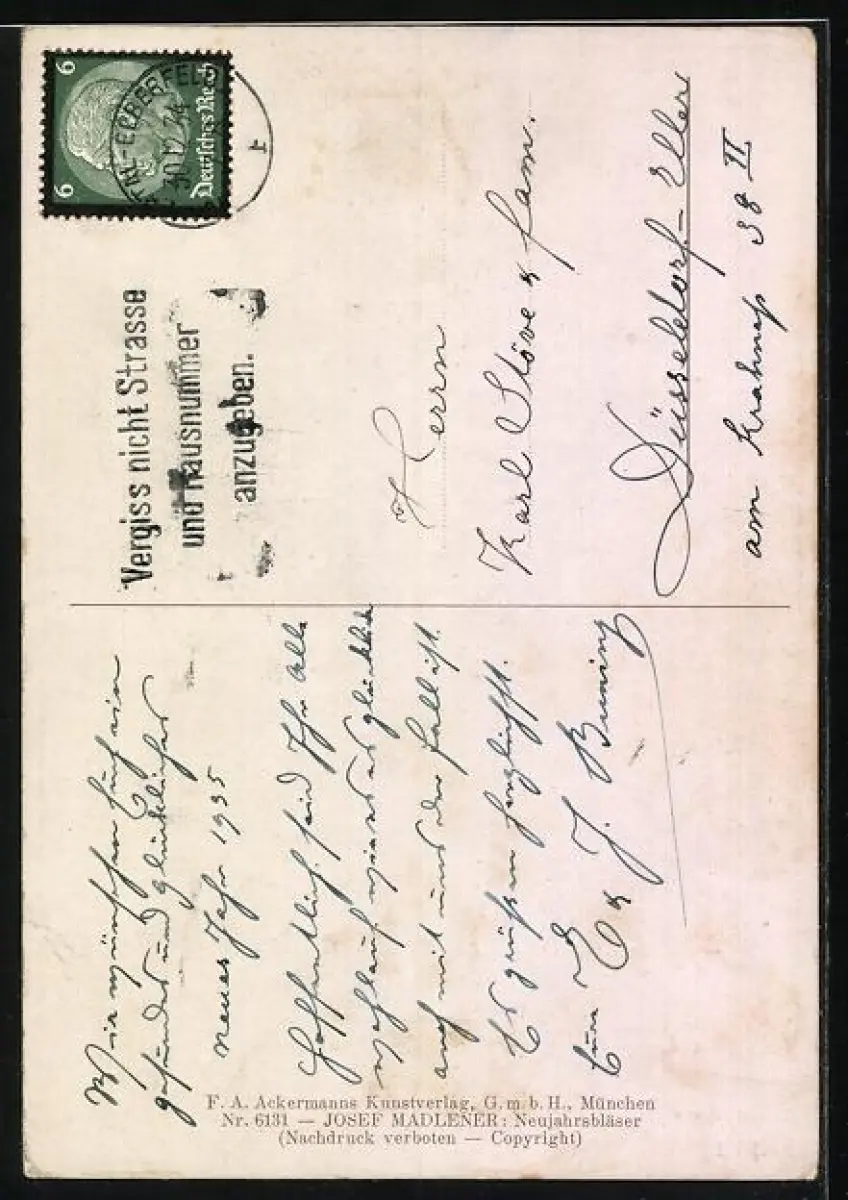 Wir wünschen Euch ein
gesundes und glückliches
neues Jahr 1935
Hoffentlich seid Ihr Alle
wohlauf, wie es glücklich
auch mit uns der Fall ist.
Es grüßen herzlichst.
Eure E & J. Büning
6 6
Deutsches Reich
TAL-ELBERFELD
30.12.34
Vergiss nicht Strasse
und Hausnummer
anzugeben.
Herrn
Karl Stöve & Fam.
Düsseldorf-Eller
am Krahnap 38 II
F. A. Ackermanns Kunstverlag, G. m. b. H., München
Nr. 6131 — JOSEF MADLENER: Neujahrsbläser
(Nachdruck verboten — Copyright)